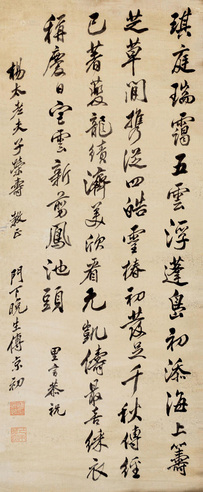 琪庭瑞靄五雲浮蓬島初添海上籌
芝草閒携從四皓雪椿初發足千秋傳經
已著夔龍績濟美欣看元凱儔最喜綵衣
稱慶日宫雲新剪鳳池頭 里言恭祝
楊太老夫子榮壽 教正
門下晚生傅京初